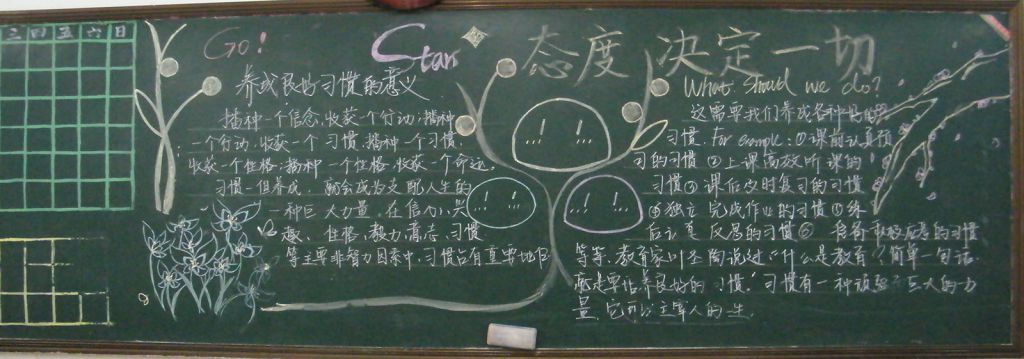 三 四 五 六 日
Go!
Star
态度 决定一切
养成良好习惯的意义
播种一个信念,收获一个行动;播种
一个行动,收获一个习惯;播种一个习惯,
收获一个性格;播种一个性格,收获一个命运.
习惯一旦养成,就会成为支配人生的
一种巨大力量。在信心、兴
趣、性格、毅力、意志、习惯
等主要非智力因素中,习惯占有重要地位
What should we do?
这需要我们养成各种好的
习惯. For example: ①课前认真预
习的习惯 ②上课高效听课的
习惯③课后及时复习的习惯
④独立完成作业的习惯⑤练
后认真反思的习惯⑥
反思的习惯
等等.教育家叶圣陶说过"什么是教育?简单一句话.
就是要培养良好的习惯."习惯有一种顽强巨大的力
量.它可以主宰人的一生.